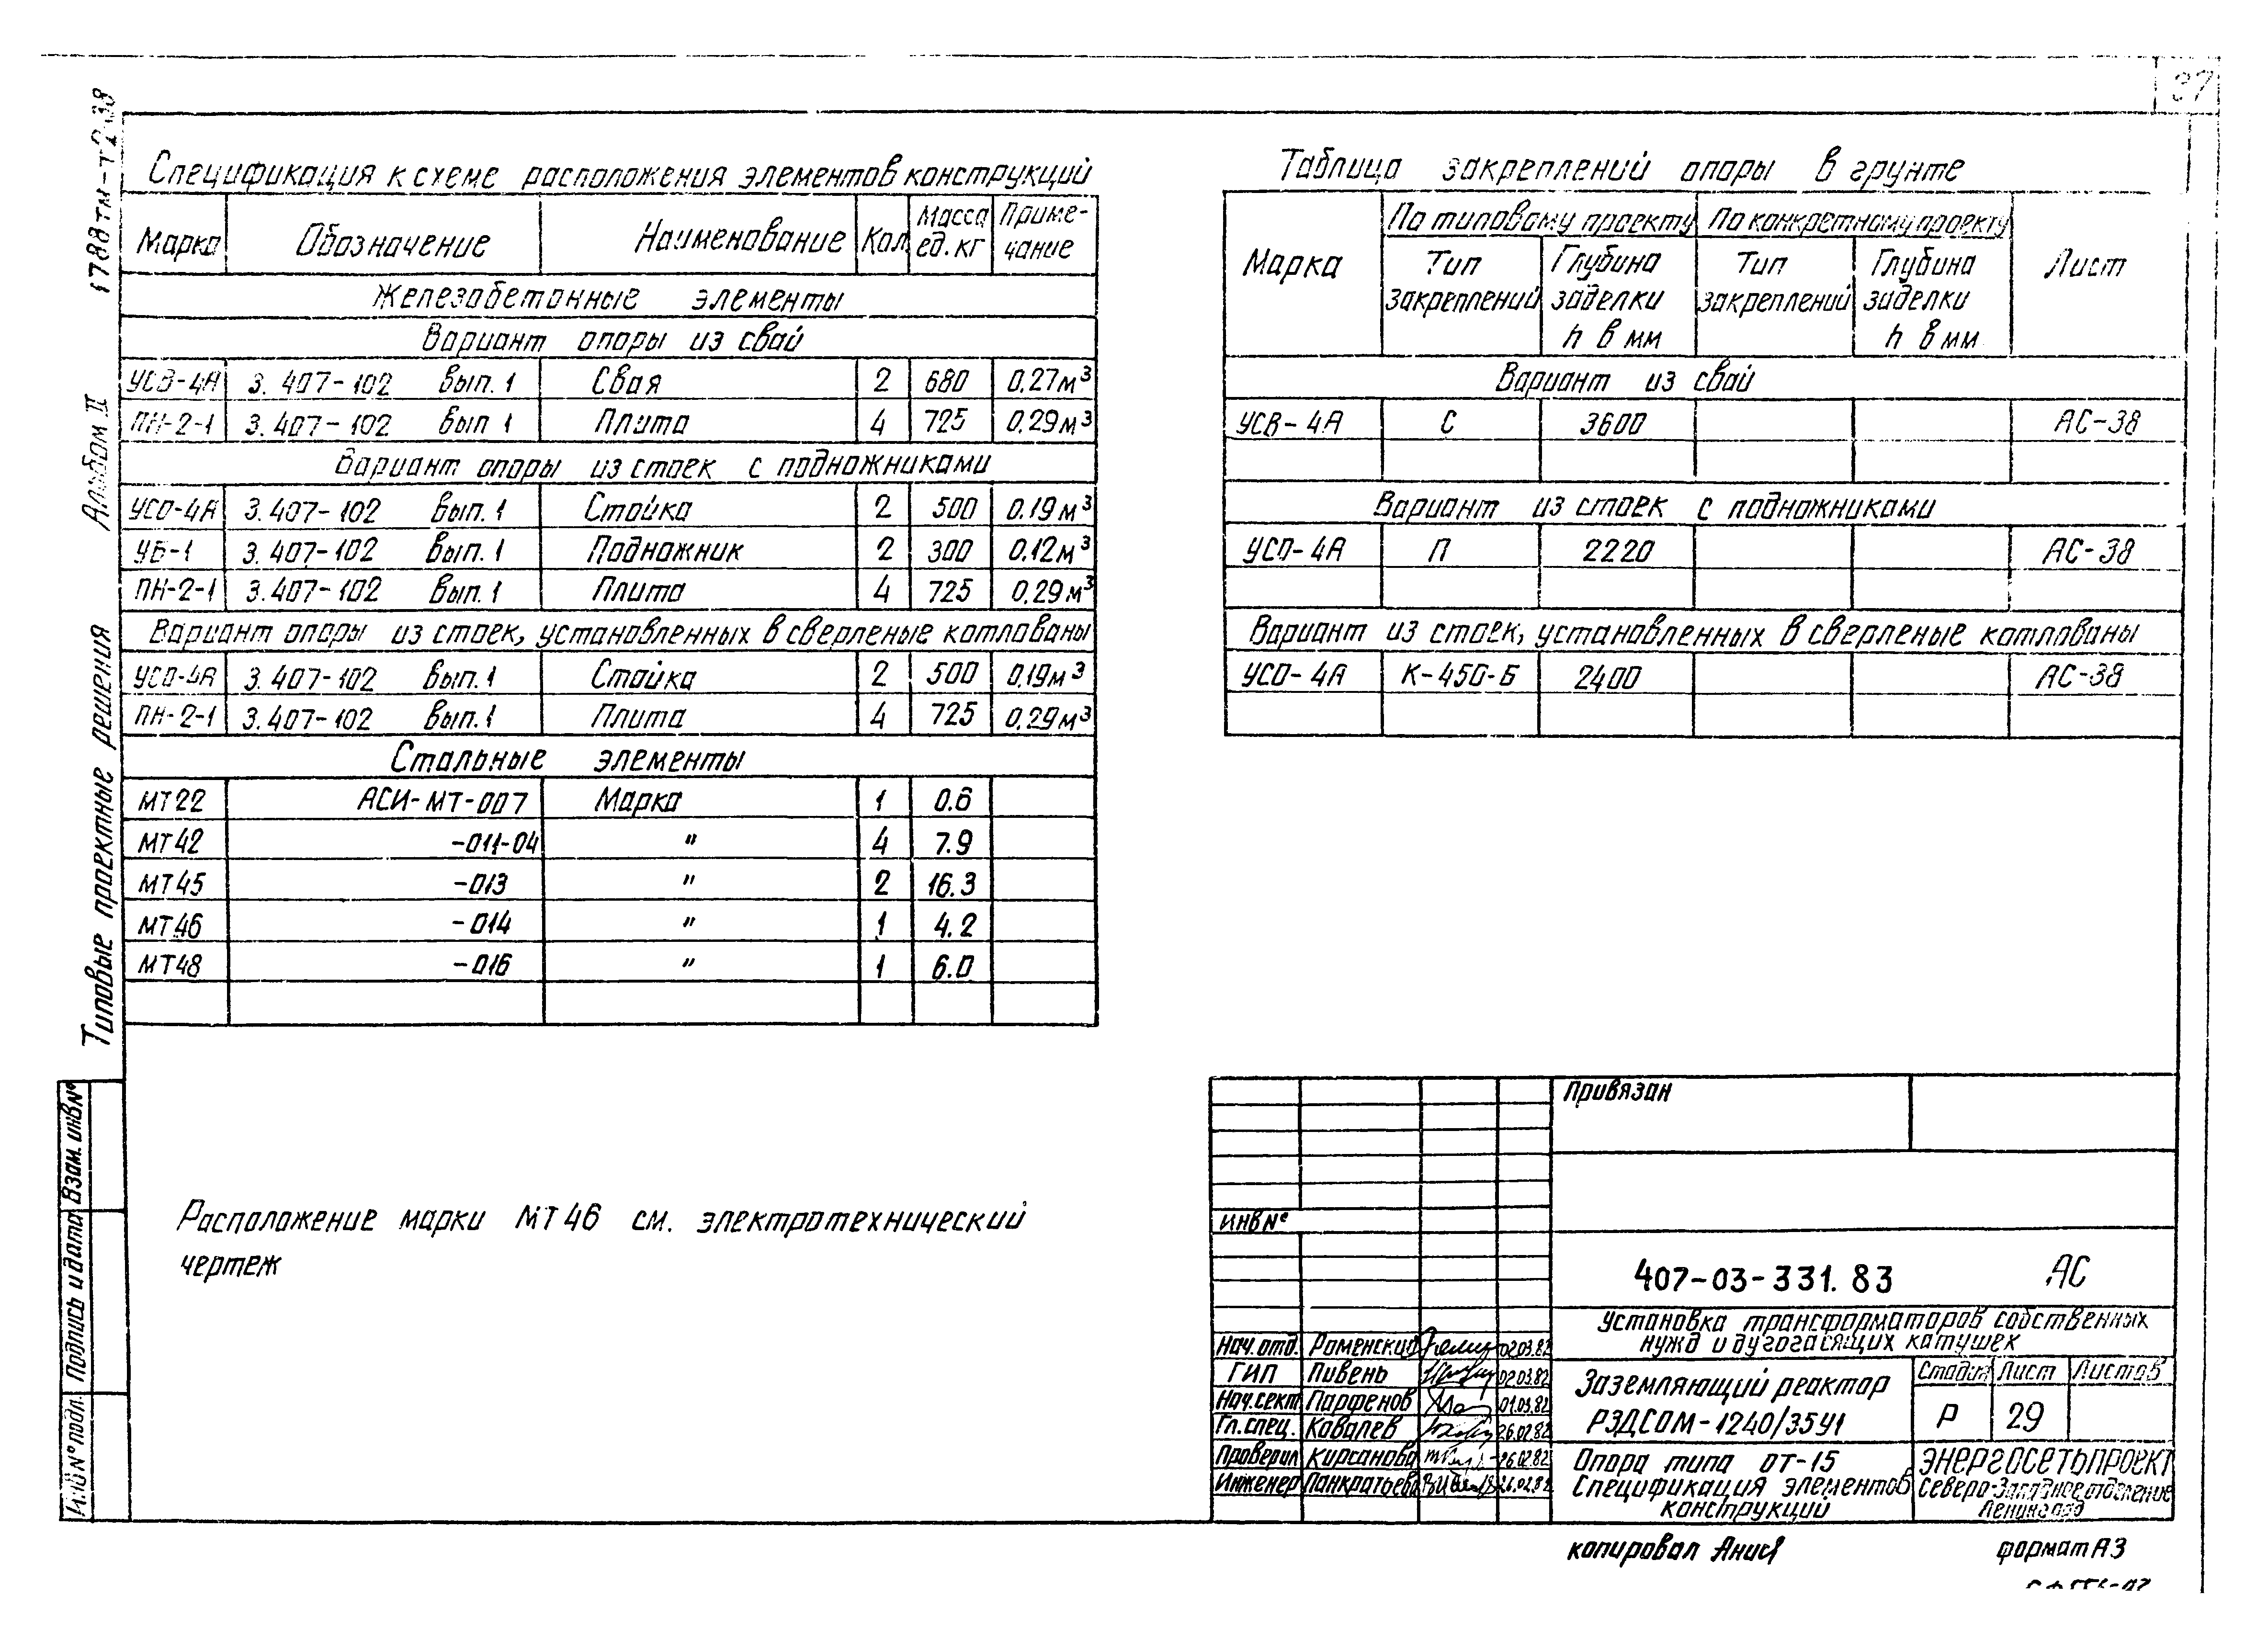 37
1788тм-т2 38
Альбом II
Типовые проектные решения
Спецификация к схеме расположения элементов конструкций
Марка Обозначение Наименование Кол. Масса ед. кг Приме-чание
Железобетонные элементы
Вариант опоры из свай
УСВ-4А 3.407-102 Вып.1 Свая 2 680 0.27м³
ПН-2-1 3.407-102 Вып 1 Плита 4 725 0.29м³
Вариант опоры из стоек с подножниками
УСО-4А 3.407-102 Вып.1 Стойка 2 500 0.19м³
УБ-1 3.407-102 Вып.1 Подножник 2 300 0.12м³
ПН-2-1 3.407-102 Вып.1 Плита 4 725 0.29м³
Вариант опоры из стоек, установленных в сверленые котлованы
УСО-4А 3.407-102 Вып.1 Стойка 2 500 0.19м³
ПН-2-1 3.407-102 Вып.1 Плита 4 725 0.29м³
Стальные элементы
МТ22 АСИ-МТ-007 Марка 1 0.6
МТ42 -011-04 " 4 7.9
МТ45 -013 " 2 16.3
МТ46 -014 " 1 4.2
МТ48 -016 " 1 6.0
Расположение марки МТ46 см. электротехнический
чертеж
Таблица закреплений опоры в грунте
По типовому проекту По конкретному проекту
Марка Тип Глубина Тип Глубина Лист
закреплений заделки закреплений заделки
h в мм h в мм
Вариант из свай
УСВ-4А С 3600 АС-38
Вариант из стоек с подножниками
УСО-4А П 2220 АС-38
Вариант из стоек, установленных в сверленые котлованы
УСО-4А К-450-Б 2400 АС-38
Взам. инв№
Подпись и дата
Инв№ подл.
Привязан
Инв№
407-03-331.83 АС
Установка трансформаторов собственных
нужд и дугогасящих катушек
Нач.отд. Роменский 02.03.82
ГИП Пивень 02.03.82
Нач.сект Парфенов 01.03.82
Гл.спец. Ковалев 26.02.82
Проверил Кирсанова 26.02.82
Инженер Панкратьева 26.02.82
Заземляющий реактор
РЗДСОМ-1240/35У1
Стадия Лист Листов
Р 29
Опора типа ОТ-15
Спецификация элементов
конструкций
ЭНЕРГОСЕТЬПРОЕКТ
Северо-Западное отделение
Ленинград
копировал
формат А3